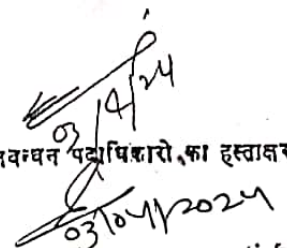 03/4/24
निबन्धन पदाधिकारी का हस्ताक्षर
03/04/2024